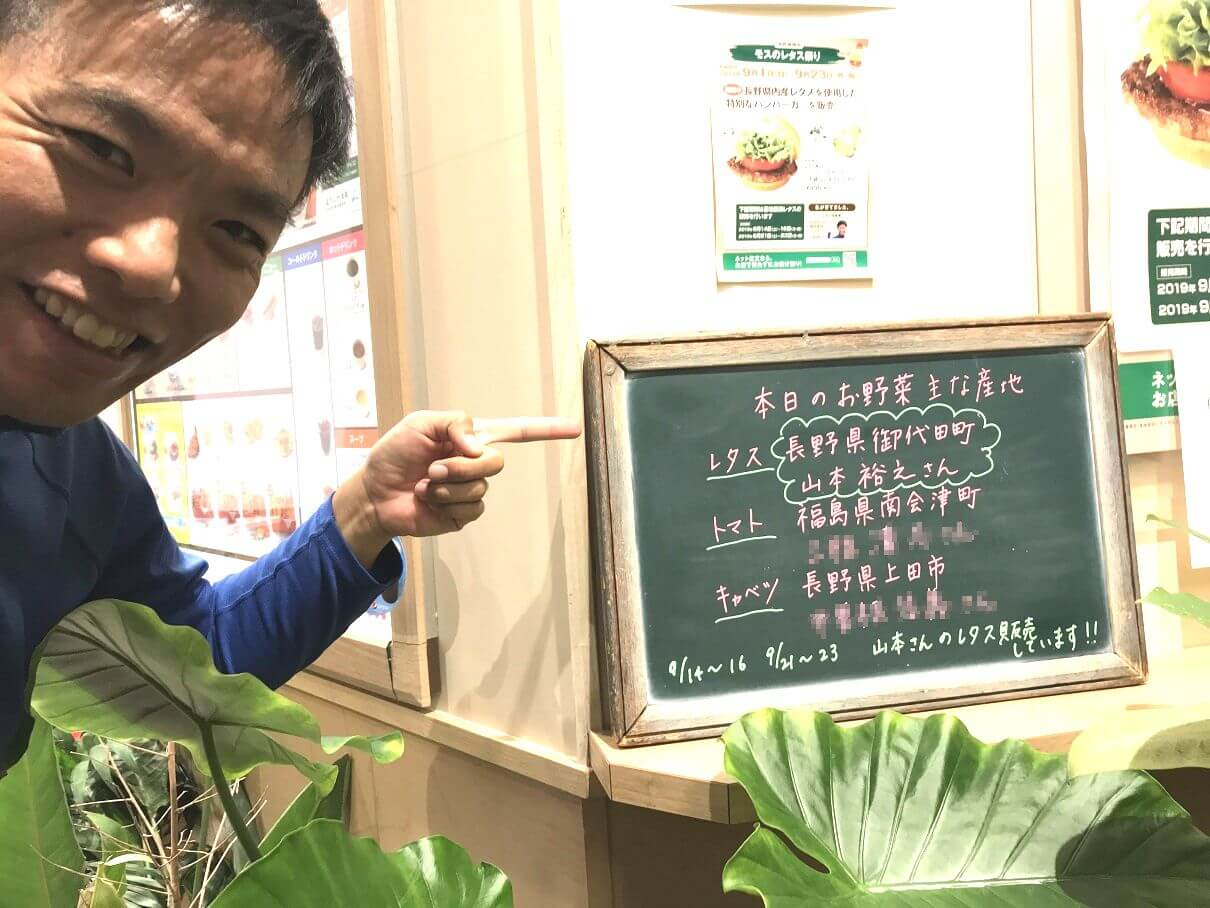 モスのレタス祭り
長野県内産レタスを使用した
特別なハンバーガーを販売
コールドドリンク
ホットドリンク
スープ
本日のお野菜主な産地
レタス 長野県御代田町
山本裕之さん
トマト 福島県南会津町
キャベツ 長野県上田市
9/14～16 9/21～23 山本さんのレタス販売
しています!!
下記期間
販売を行
販売期間
2019年 9
2019年 9
ネッ
お店